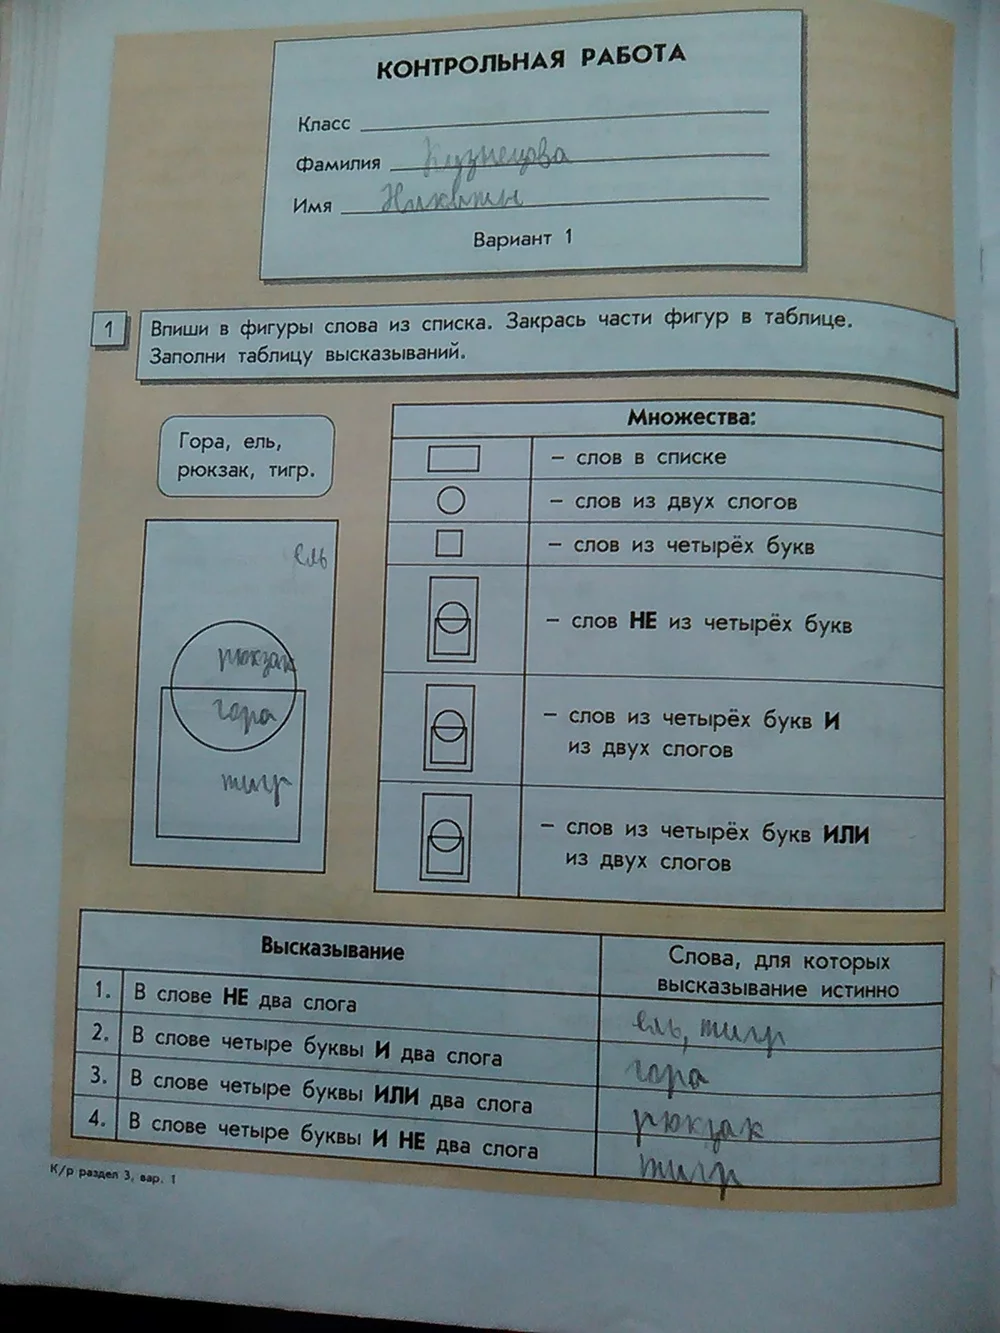 КОНТРОЛЬНАЯ РАБОТА
Класс
Фамилия Кузнецова
Имя Никиты
Вариант 1
1
Впиши в фигуры слова из списка. Закрась части фигур в таблице.
Заполни таблицу высказываний.
Гора, ель,
рюкзак, тигр.
ель
рюкзак
гора
тигр
Множества:
– слов в списке
– слов из двух слогов
– слов из четырёх букв
– слов НЕ из четырёх букв
– слов из четырёх букв И
из двух слогов
– слов из четырёх букв ИЛИ
из двух слогов
Высказывание
Слова, для которых
высказывание истинно
1. В слове НЕ два слога ель, тигр
2. В слове четыре буквы И два слога гора
3. В слове четыре буквы ИЛИ два слога рюкзак
4. В слове четыре буквы И НЕ два слога тигр
К/р раздел 3, вар. 1